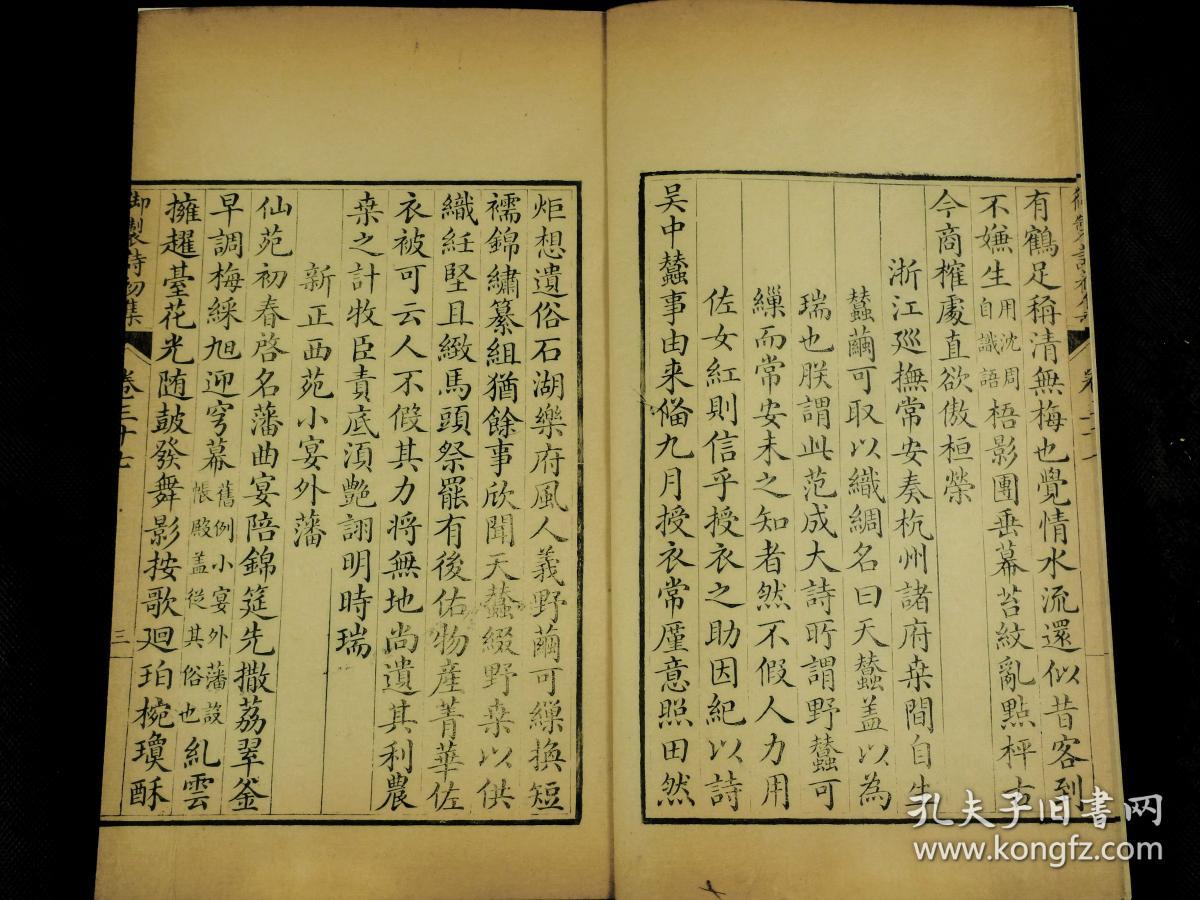 有鶴足稱清無梅也覺情水流還似昔客到
不嫌生用沈周自識語梧影團垂幕苔紋亂點枰古
今商榷處直欲傲桓榮
浙江廵撫常安奏杭州諸府桒間自生
蠶繭可取以織綢名曰天蠶盖以為
瑞也朕謂此范成大詩所謂野蠶可
繅而常安未之知者然不假人力用
佐女紅則信乎授衣之助因紀以詩
吴中蠶事由来俻九月授衣常廑意照田然
炬想遺俗石湖樂府風人義野繭可繅換短
襦錦繡纂組猶餘事欣聞天蠶綴野桒以供
織紝堅且緻馬頭祭罷有後佑物產菁華佐
衣被可云人不假其力将無地尚遺其利農
桒之計牧臣責底湏艶詡明時瑞
新正西苑小宴外藩
仙苑初春啓名藩曲宴陪錦筵先撒荔翠釜
早調梅綵旭迎穹幕舊例小宴外藩設帳殿盖從其俗也糺雲
擁趯臺花光随鼓發舞影按歌廻珀椀瓊酥
御製詩初集
卷三十七
三
孔夫子旧书网
www.kongfz.com